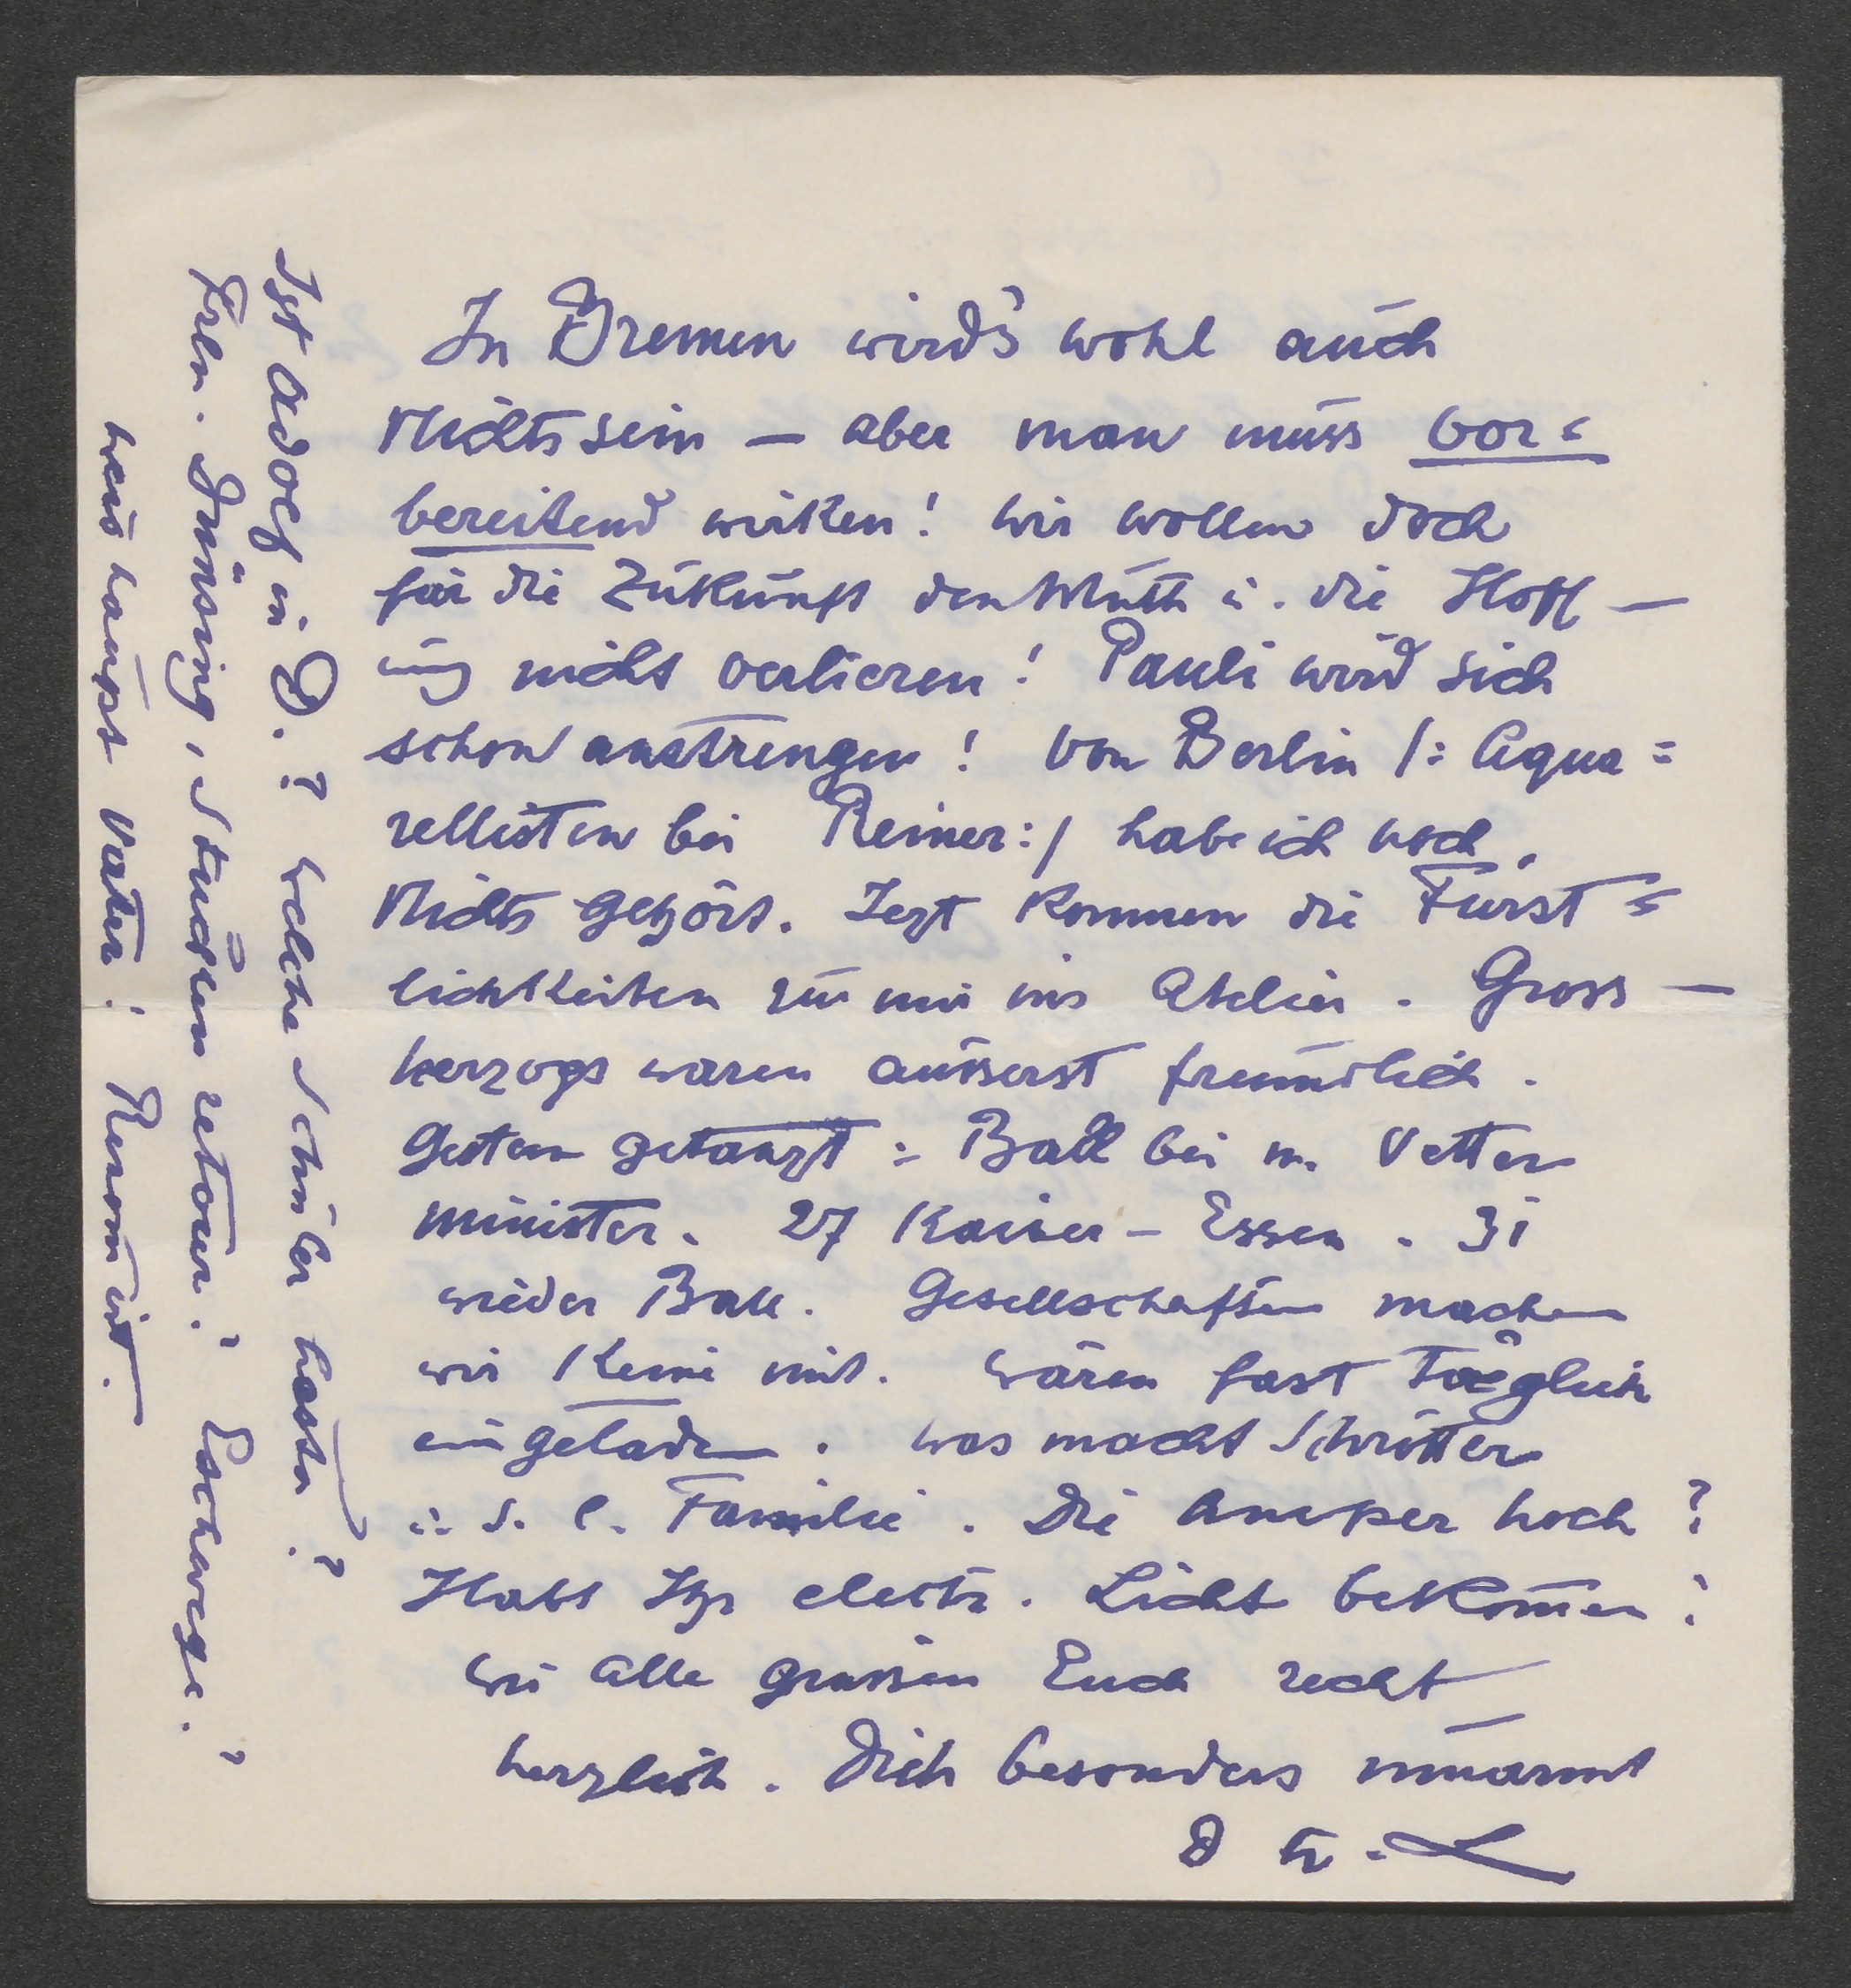 In Bremen wird's wohl auch
Nichts sein — aber man muss vor=
bereitend wirken! Wir wollen doch
für die Zukunft den Muth u. die Hoff—
ung nicht verlieren! Pauli wird sich
schon anstrengen! Von Berlin /: Aqua=
rellisten bei Reiner :/ habe ich noch
Nichts gehört. Jezt kommen die Fürst=
lichkeiten zu mir ins Atelier. Gross—
herzogs waren äusserst freundlich.
Gestern getanzt: Ball bei m. Vetter
minister. 27 Kaiser-Essen. 31
wieder Ball. Gesellschaften machen
wir keine mit. Wären fast täglich
eingeladen. Was macht Schrötter
u. s. l. Familie. Die Amper hoch?
Habt Ihr electr. Licht bekommen?
Wir alle grüssen Euch recht
herzlich. Dich besonders umarmt
D tr. L
Ist Adolf in D.? Welche Schüler hast Du?
Frln. Jünsing, Studien retour? Eschwege?
Hans Haupt Vater: